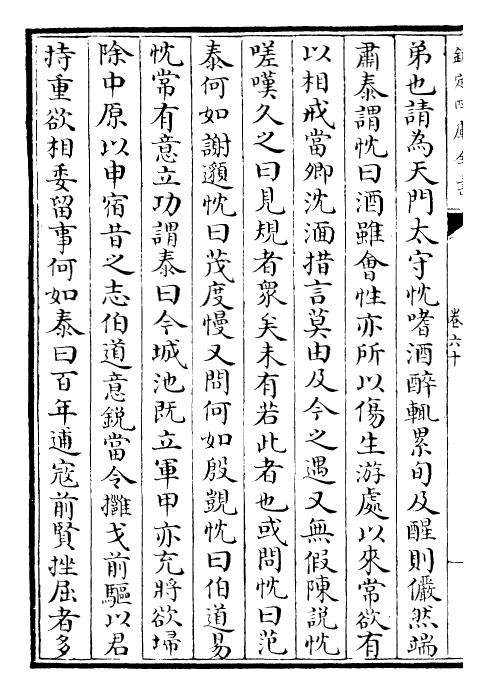 欽定四庫全書
卷六十
弟也請為天門太守忱嗜酒醉輒累旬及醒則儼然端
肅泰謂忱曰酒雖會性亦所以傷生游處以來常欲有
以相戒當卿沈湎措言莫由及今之遇又無假陳説忱
嗟嘆久之曰見規者衆矣未有若此者也或問忱曰范
泰何如謝邈忱曰茂度慢又問何如殷覬忱曰伯道易
忱常有意立功謂泰曰今城池既立軍甲亦充將欲埽
除中原以申宿昔之志伯道意鋭當令擁戈前驅以君
持重欲相委留事何如泰曰百年逋寇前賢挫屈者多